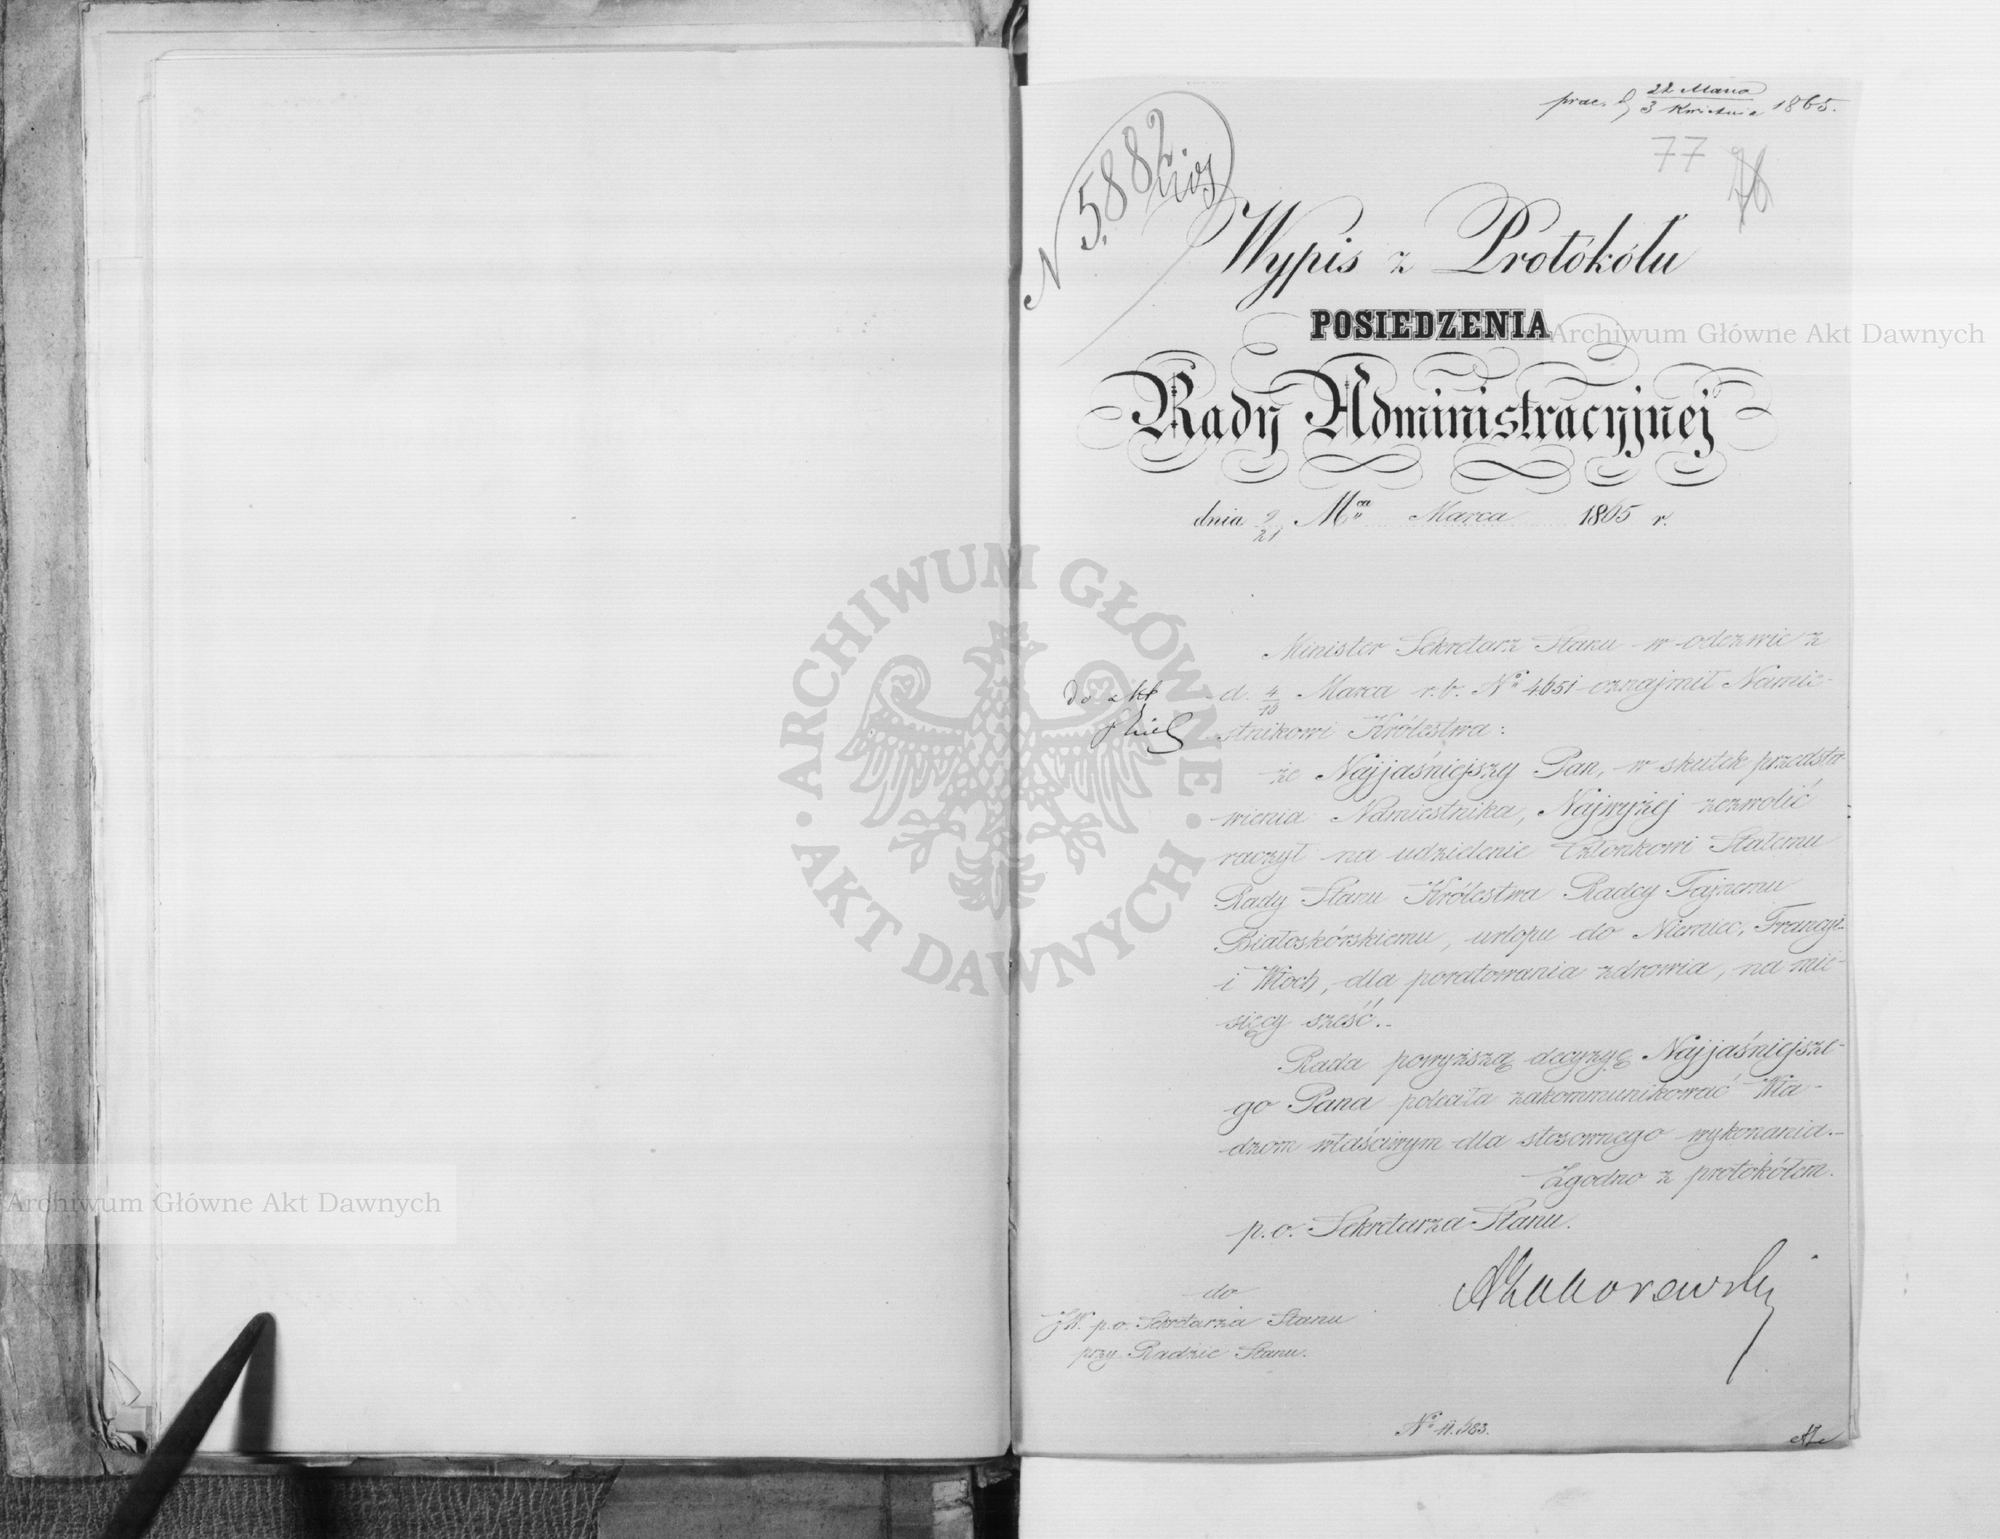 22 Marca
3 Kwietnia 1865.
77
76
N 5882
Wypis z Protókółu
POSIEDZENIA
Rady Administracyjnej
dnia 9/21 Mca Marca 1865 r.
Minister Sekretarz Stanu w odezwie z
d. 4/16 Marca r. b. No 4651 oznajmił Namie-
stnikowi Królestwa:
do akt
że Najjaśniejszy Pan, w skutek przedsta-
wienia Namiestnika, Najwyżej zezwolić
raczył na udzielenie Członkowi Stałemu
Rady Stanu Królestwa Radcy Tajnemu
Białoskórskiemu, urlopu do Niemiec, Francyi
i Włoch, dla poratowania zdrowia, na mie-
sięcy sześć.
Rada powyższą decyzyę Najjaśniejsze-
go Pana poleciła zakommunikować Wła-
dzom właściwym dla stosownego wykonania.
Zgodno z protokółem.
p. o. Sekretarza Stanu.
do
JW. p. o. Sekretarza Stanu
przy Radzie Stanu.
No 11.583.
Archiwum Główne Akt Dawnych
Archiwum Główne Akt Dawnych
ARCHIWUM GŁÓWNE AKT DAWNYCH